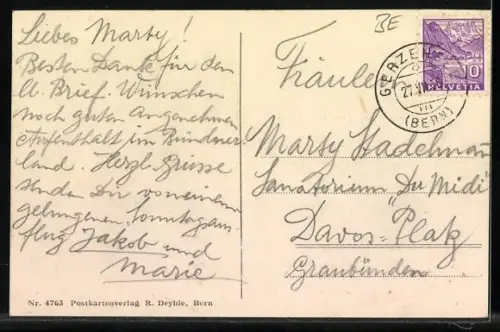 Liebes Marty!
Besten Dank für den
lb. Brief. Wünschen
noch guten angenehmen
Aufenthalt im Bündner-
land. Herzl. Grüsse
senden Dir von einem
gelungenen Sonntagsaus-
flug Jakob und
Marie
Nr. 4763 Postkartenverlag R. Deyhle, Bern
BE
Fräulein
Marty Stadelmann
Sanatorium "Du Midi"
Davos-Platz
Graubünden
GERZENS
27.VII
(BERN)
10
HELVETIA